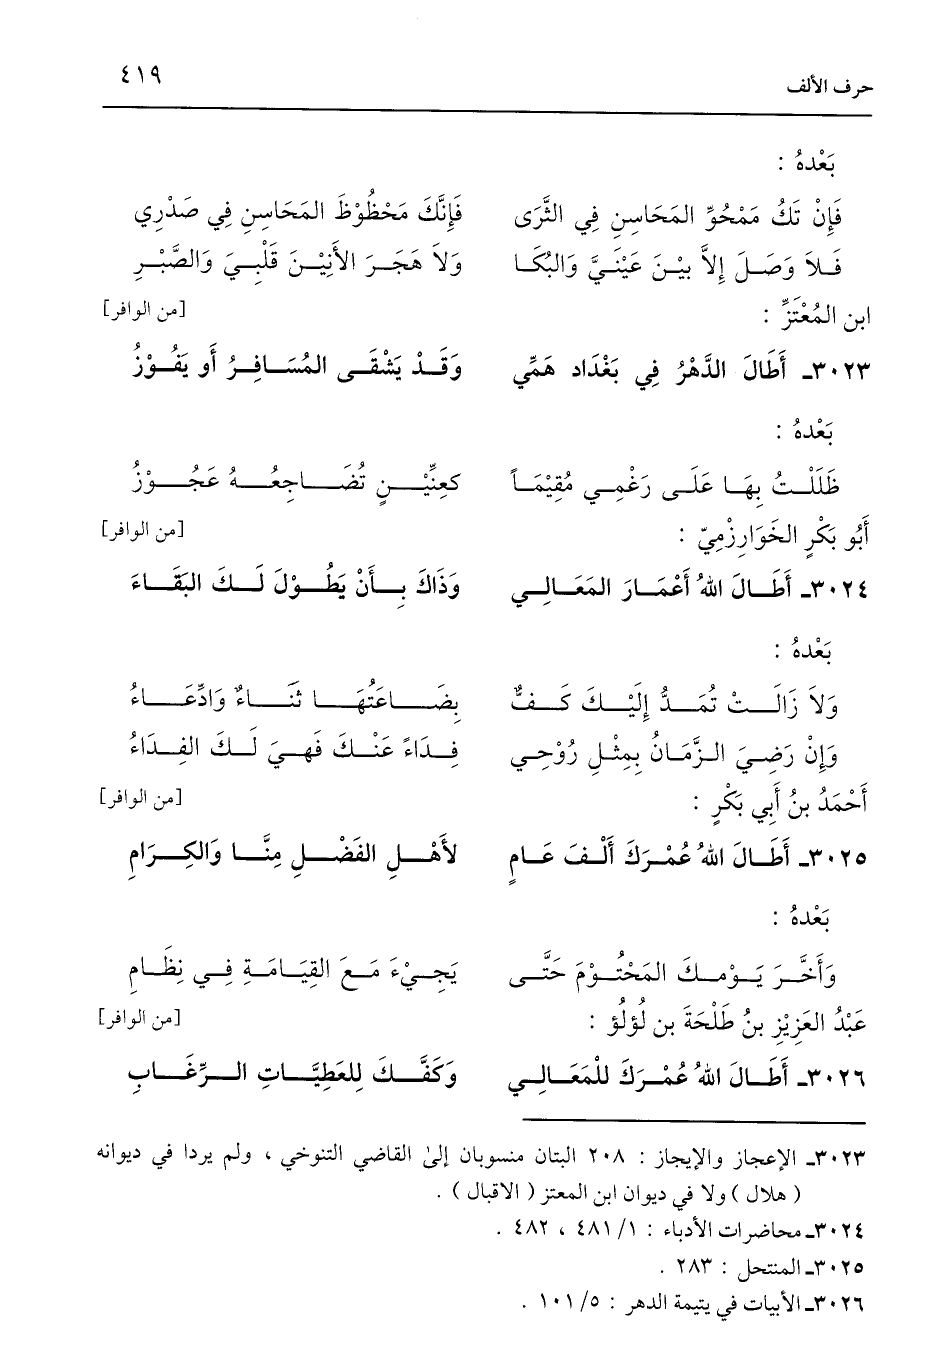 حرف الألف ٤١٩
بَعْدهُ :
فَإِنْ تَكُ مَمْحُوَّ المَحَاسِنِ فِي الثَّرَى فَإِنَّكَ مَحْظُوْظَ المَحَاسِنِ فِي صَدْرِي
فَلاَ وَصَلَ إِلاَّ بيْنَ عَيْنَيَّ وَالبُكَا وَلاَ هَجَرَ الأَنِيْنَ قَلْبِيَ وَالصَّبْرِ
ابن المُعْتَزِّ : [من الوافر]
٣٠٢٣ـ أَطَالَ الدَّهْرُ فِي بَغْدَاد هَمِّي وَقَدْ يَشْقَى المُسَافِرُ أَو يَفُوْزُ
بَعْدهُ :
ظَلَلْتُ بِهَا عَلَى رَغْمِي مُقِيْمَاً كعِنِّيْنٍ تُضَاجِعُهُ عَجُوْزُ
أَبُو بَكْرٍ الخَوَارِزْمِيّ : [من الوافر]
٣٠٢٤ـ أَطَالَ اللهُ أَعْمَارَ المَعَالِي وَذَاكَ بِأَنْ يَطُوْلَ لَكَ البَقَاءَ
بَعْدهُ :
وَلاَ زَالَتْ تُمَدُّ إِلَيْكَ كَفٌّ بِضَاعَتُهَا ثَنَاءٌ وَادِّعَاءُ
وَإِنْ رَضِيَ الزَّمَانُ بِمِثْلِ رُوْحِي فِدَاءً عَنْكَ فَهِيَ لَكَ الفِدَاءُ
أَحْمَدُ بنُ أَبِي بَكْرٍ : [من الوافر]
٣٠٢٥ـ أَطَالَ اللهُ عُمْرَكَ أَلْفَ عَامٍ لأَهْلِ الفَضْلِ مِنَّا وَالكِرَامِ
بَعْدهُ :
وَأَخَّرَ يَوْمكَ المَحْتُوْمَ حَتَّى يَجِيْءَ مَعَ القِيَامَةِ فِي نِظَامِ
عَبْدُ العَزِيْزِ بنُ طَلْحَةَ بن لُؤلُؤ : [من الوافر]
٣٠٢٦ـ أَطَالَ اللهُ عُمْرَكَ للْمَعَالِي وَكَفَّكَ لِلعَطِيَّاتِ الرِّغَابِ
٣٠٢٣ـ الإعجاز والإيجاز : ٢٠٨ البتان منسوبان إلىٰ القاضي التنوخي ، ولم يردا في ديوانه
( هلال ) ولا في ديوان ابن المعتز ( الاقبال ) .
٣٠٢٤ـ محاضرات الأدباء : ١/ ٤٨١ ، ٤٨٢ .
٣٠٢٥ـ المنتحل : ٢٨٣ .
٣٠٢٦ـ الأبيات في يتيمة الدهر : ٥/ ١٠١ .